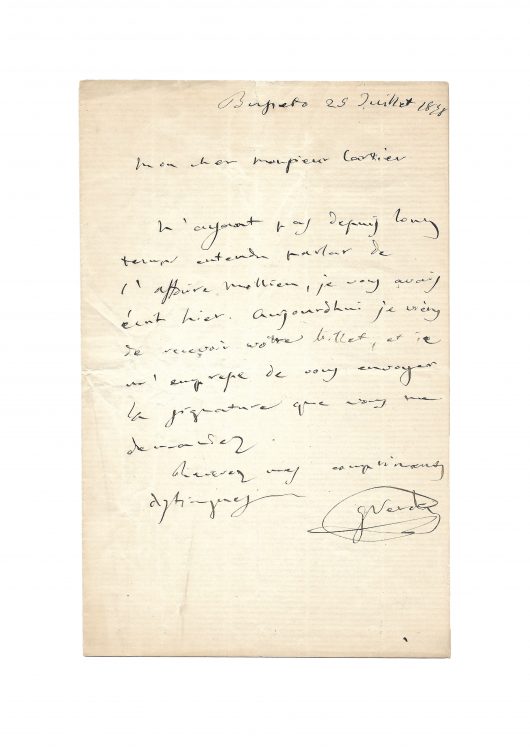 Busseto 25 Juillet 18
Mon cher Monsieur Cartier
N'ayant pas depuis long
temps entendu parler de
l'affaire Mellien, je vous avais
écrit hier. Aujourdhui je viens
de recevoir votre billet, et je
m'empresse de vous envoyer
la signature que vous me
demandez.
Recevez mes complimens
distingués
G Verdi